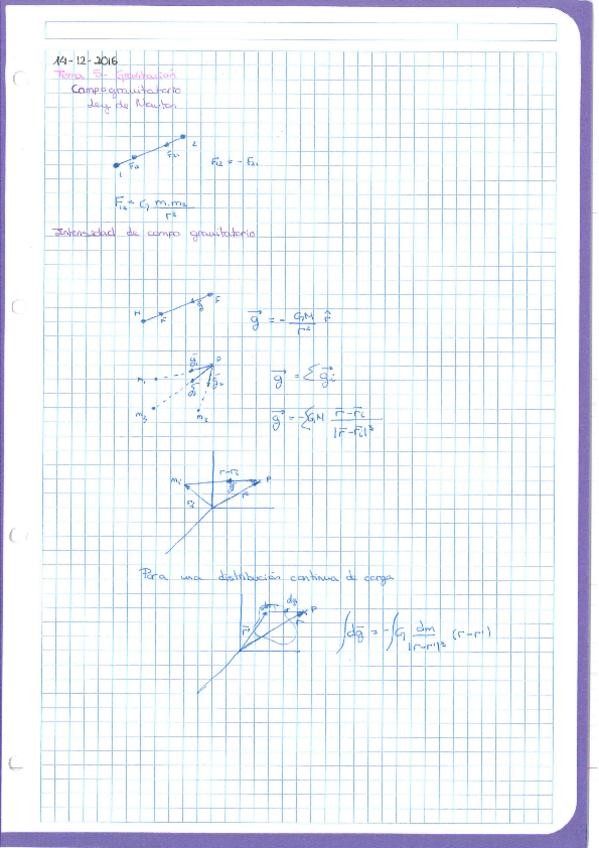 14-12-2016
Tema 5- Gravitación
Campo gravitatorio
Ley de Newton
2
F₂₁
F₁₂
1
F₁₂ = - F₂₁
F₁₂ = G m₁ m₂ / r²
Intensidad de campo gravitatorio
M
F
g
g⃗ = - GM / r² r̂
P
m₁
m₃
m₂
g⃗ = Σ g⃗ᵢ
g⃗ = - Σ GM r̄ - r̄ᵢ / |r̄ - r̄ᵢ|³
r-rᵢ
mᵢ
P
g
rᵢ
r
Para una distribución continua de carga
dg
P
r̄'
r
∫dḡ = -∫G dm / |r-r'|³ (r-r')